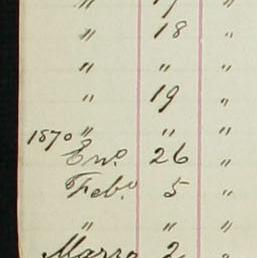 " 17 "
" 18 "
" " "
" 19 "
1870 " " "
Eno. 26 "
Febo. 5 "
" " "
Marzo 2 "